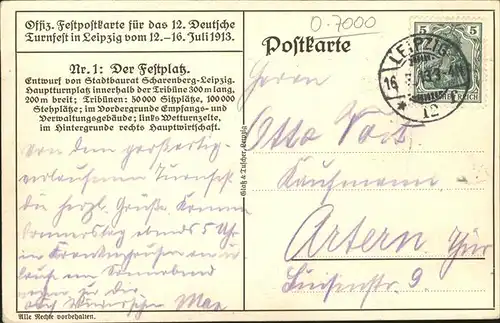 Offiz. Festpostkarte für das 12. Deutsche
Turnfest in Leipzig vom 12.-16. Juli 1913.
0-7000
Nr. 1: Der Festplatz.
Entwurf von Stadtbaurat Scharenberg-Leipzig.
Hauptturnplatz innerhalb der Tribüne 300 m lang,
200 m breit; Tribünen: 50000 Sitzplätze, 100000
Stehplätze; im Vordergrunde Empfangs- und
Verwaltungsgebäude; links Wetturnzelte,
im Hintergrunde rechts Hauptwirtschaft.
Von dem großartig
verlaufenen Turnfest
die herzl. Grüße. Komme
Donnerstag abend 5 Uhr
in
Sonnabend
auf Wiedersehn Max
Alle Rechte vorbehalten.
Glaß & Tuscher, Leipzig
Postkarte
5 5
LEIPZIG
16
12
Otto
Kaufmann
Artern Thür
Luisenstr. 9